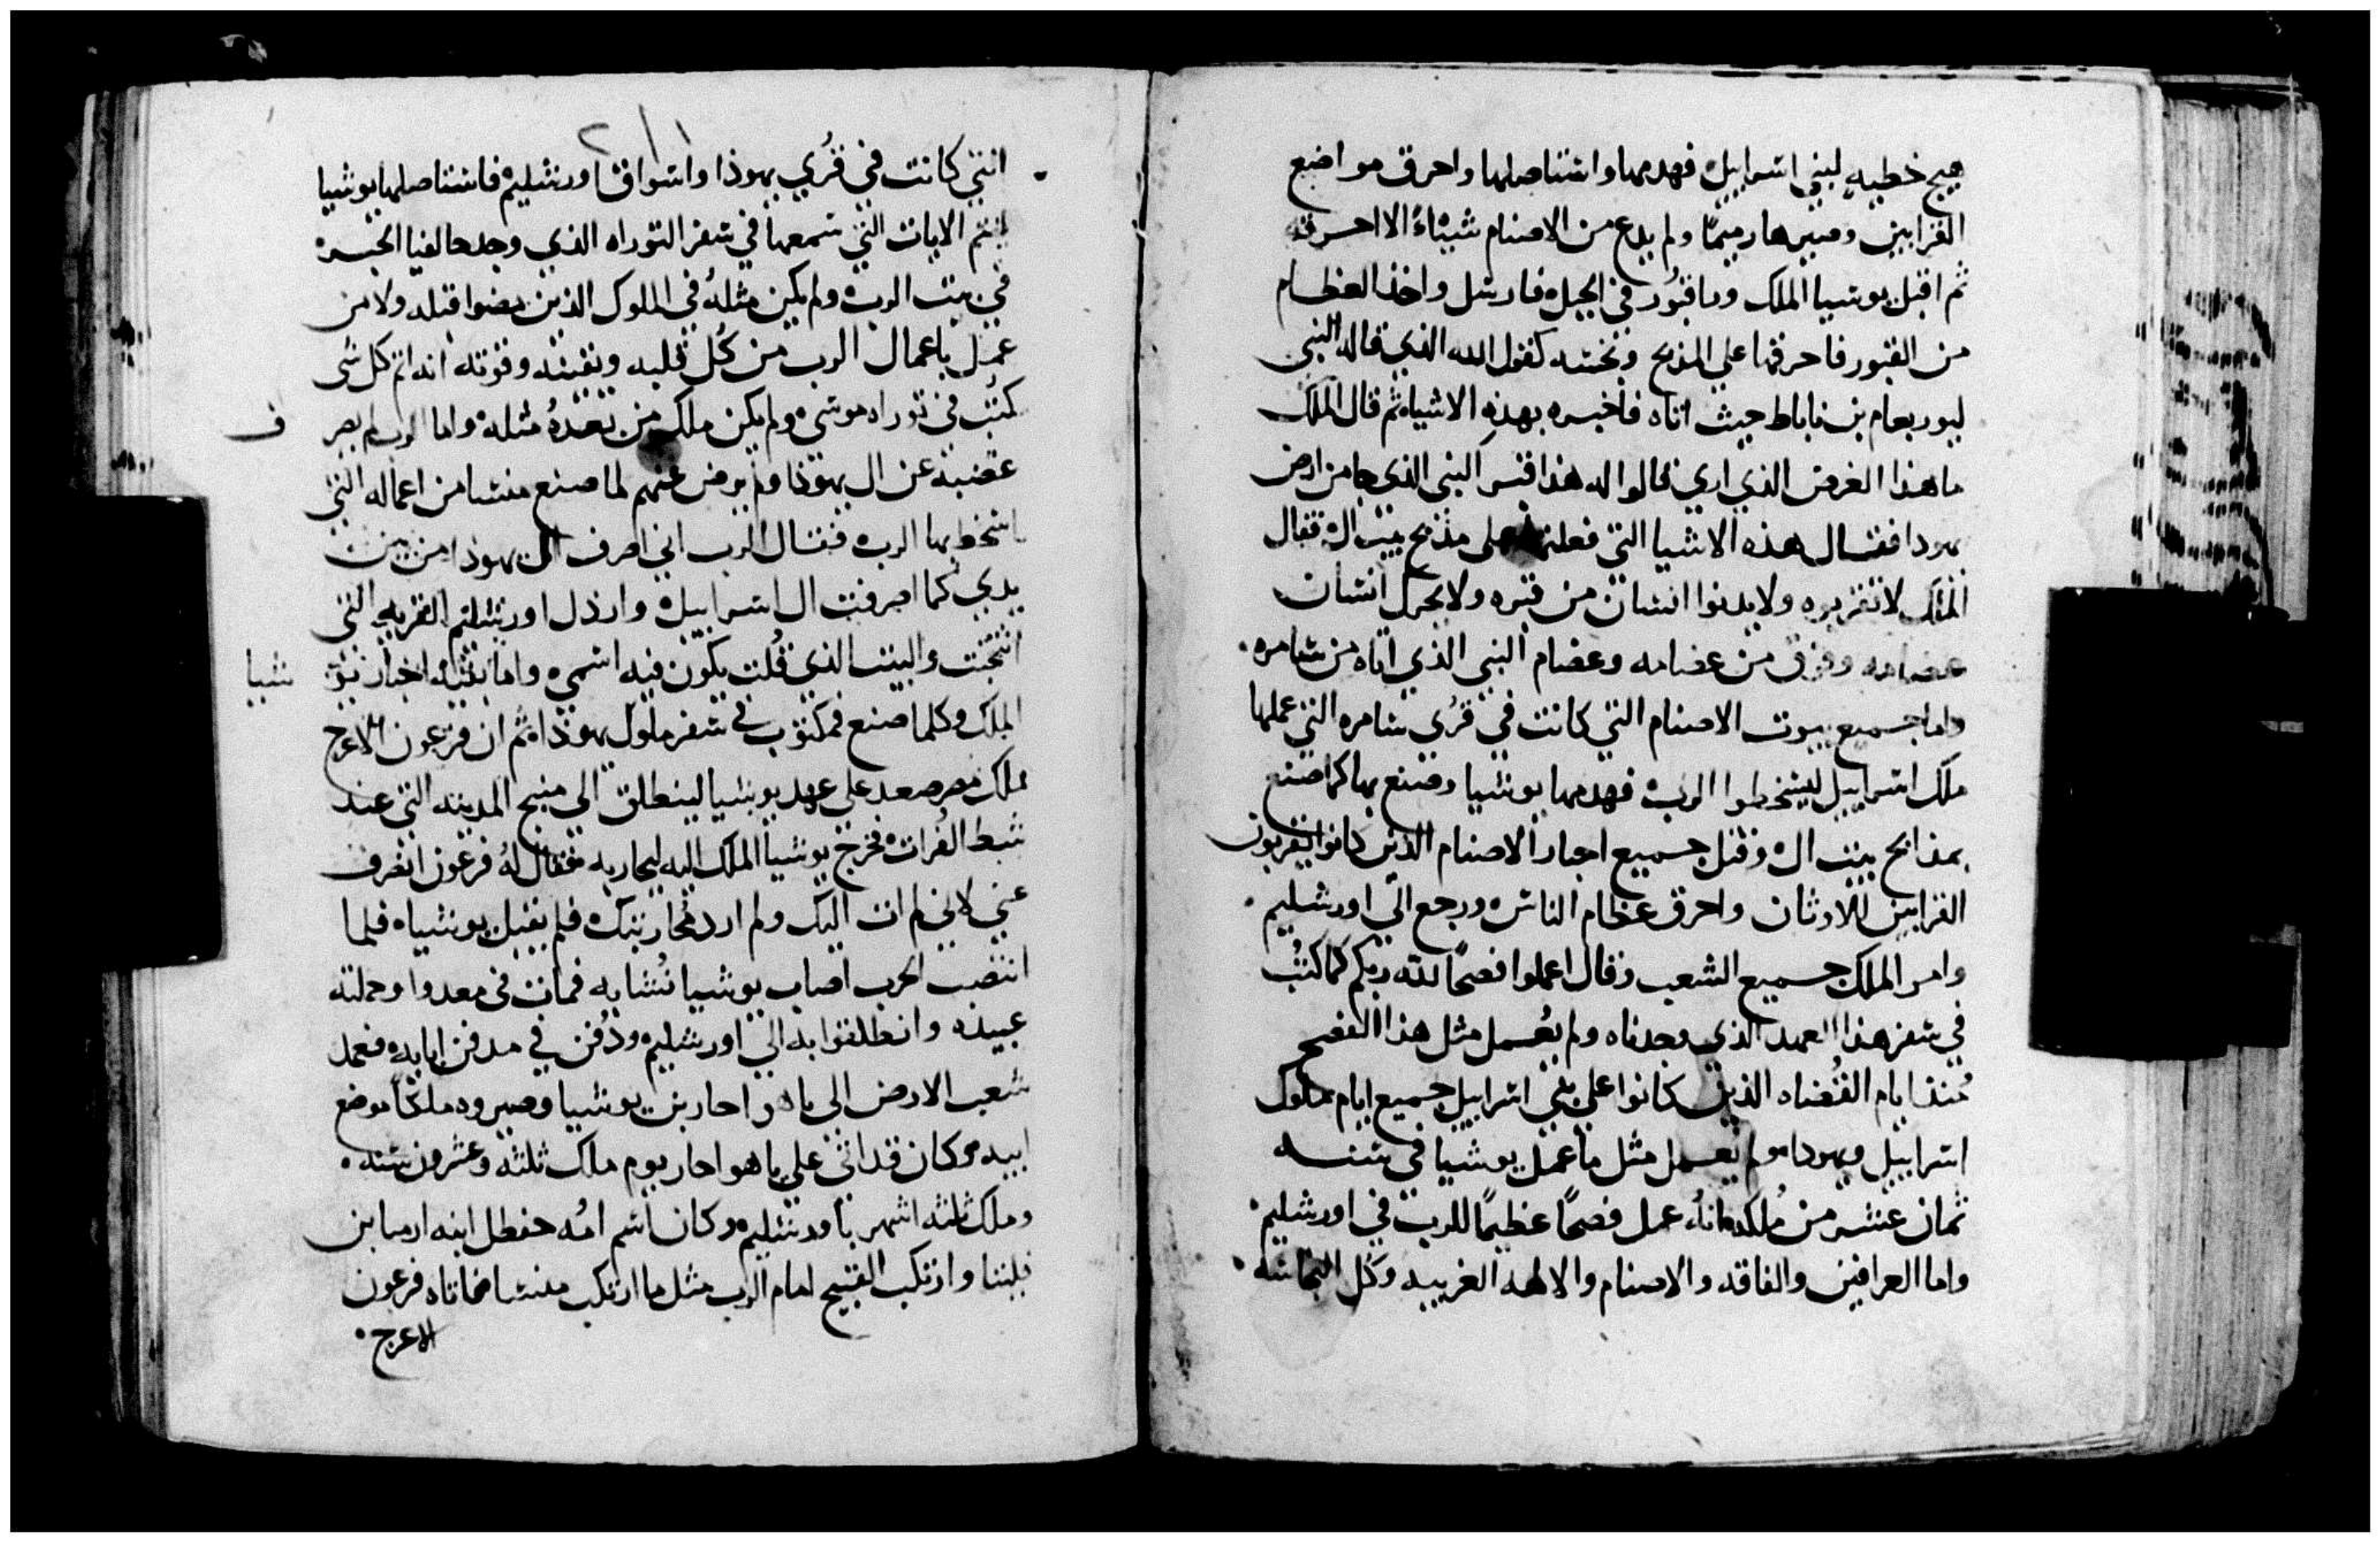 هيج خطيه لبني اسراييل فهدمها واستاصلها واحرق مواضع
القرابين وصيرها رميمًا ولم يدع من الاصنام شيئاً الا احرقه
ثم اقبل يوشيا الملك وراقبور في الجبل فارسل واخذ العظام
من القبور فاحرقها على المذبح ونجسه كقول الله الذي قاله النبي
ليوربعام بن ناباط حيث اتاه فاخبره بهذه الاشياه ثم قال الملك
ما هذا الغرض الذي اري فقالوا له هذا قبر النبي الذي جا من ارض
يهودا فقال هذه الاشيا التي فعلتها على مذبح بيت ال فقال
الملك لا تقربوه ولا يدنوا انسان من قبره ولا يحرك انسان
عضامه وفرق من عضامه وعضام النبي الذي اتاه من شامره
واما جميع بيوت الاصنام التي كانت في قرُي شامره التي عملها
ملك اسراييل ليسخطوا الرب فهدمها يوشيا وصنع بها كما صنع
بمذابح بيت ال وقتل جميع احبار الاصنام الذين كانوا يقربون
القرابين للاوثان واحرق عظام الناس ورجع الي اورشليم
وامر الملك جميع الشعب وقال اعملوا فصحًا لله ربكم كما كتُب
في سفر هذا العهد الذي وجدناه ولم يعُمل مثل هذا الفصح
مُنذ ايام القُضاه الذين كانوا على بني اسراييل جميع ايام ملوك
اسراييل ويهودا ولم يعمل مثل ما عمل يوشيا في سنه
ثمان عشر من مُلكه فانهُ عمل فصحًا عظيمًا للرب في اورشليم
واما العرافين والفاقه والاصنام والالهه الغريبه وكُل النجاسه
التي كانت في قرُي يهوذا واسواق اورشليم فاستاصلها يوشيا
ليتم الايات التي سمعها في سفر التوراه الذي وجد حالفيا الحبر
في بيت الرب ولم يكن مثلهُ في الملوك الذين مضوا قبله ولا من
عمل باعمال الرب من كُل قلبه ونفسه وقوته انه اتم كل شي
كتُب في توراه موسي ولم يكن ملك من بعدهُ مثله واما الرب لم يصرف
غضبه عن ال يهوذا ولم يرض عنهم لما صنع منشا من اعماله التي
اسخط بها الرب فقال الرب اني اصرف ال يهوذا من بين
يدي كما اصرفت ال اسراييل وارذل اورشليم القريه التي
انتجبت والبيت الذي قُلت يكون فيه اسمي واما بقيه اخبار يوشيا
الملك وكلما صنع فمكتوب في سفر ملوك يهوذا ثم ان فرعون الاعرج
ملك مصر صعد على عهد يوشيا لينطلق الي منبج المدينه التي عند
شط الفُرات فخرج يوشيا الملك اليه ليحاربه فقال لهُ فرعون انصرف
عني لاني لم ات اليك ولم ارد محاربتك فلم يقبل يوشيا فلما
انتصبت الحرب اصاب يوشيا نُشابه فمات في معدوا وحملته
عبيده وانطلقوا به الي اورشليم ودُفن في مدفن ابايه فعمد
شعب الارض الي ياهواحاز بن يوشيا وصيروه ملكًا موضع
ابيه وكان قد اتى على ياهواحاز يوم ملك ثلثه وعشرون سنه
وملك ثلثه اشهر باورشليم وكان اسم امُه حفطل ابنه ارميا بن
لبنا وارتكب القبيح امام الرب مثل ما ارتكب منشا فاتاه فرعون
الاعرج